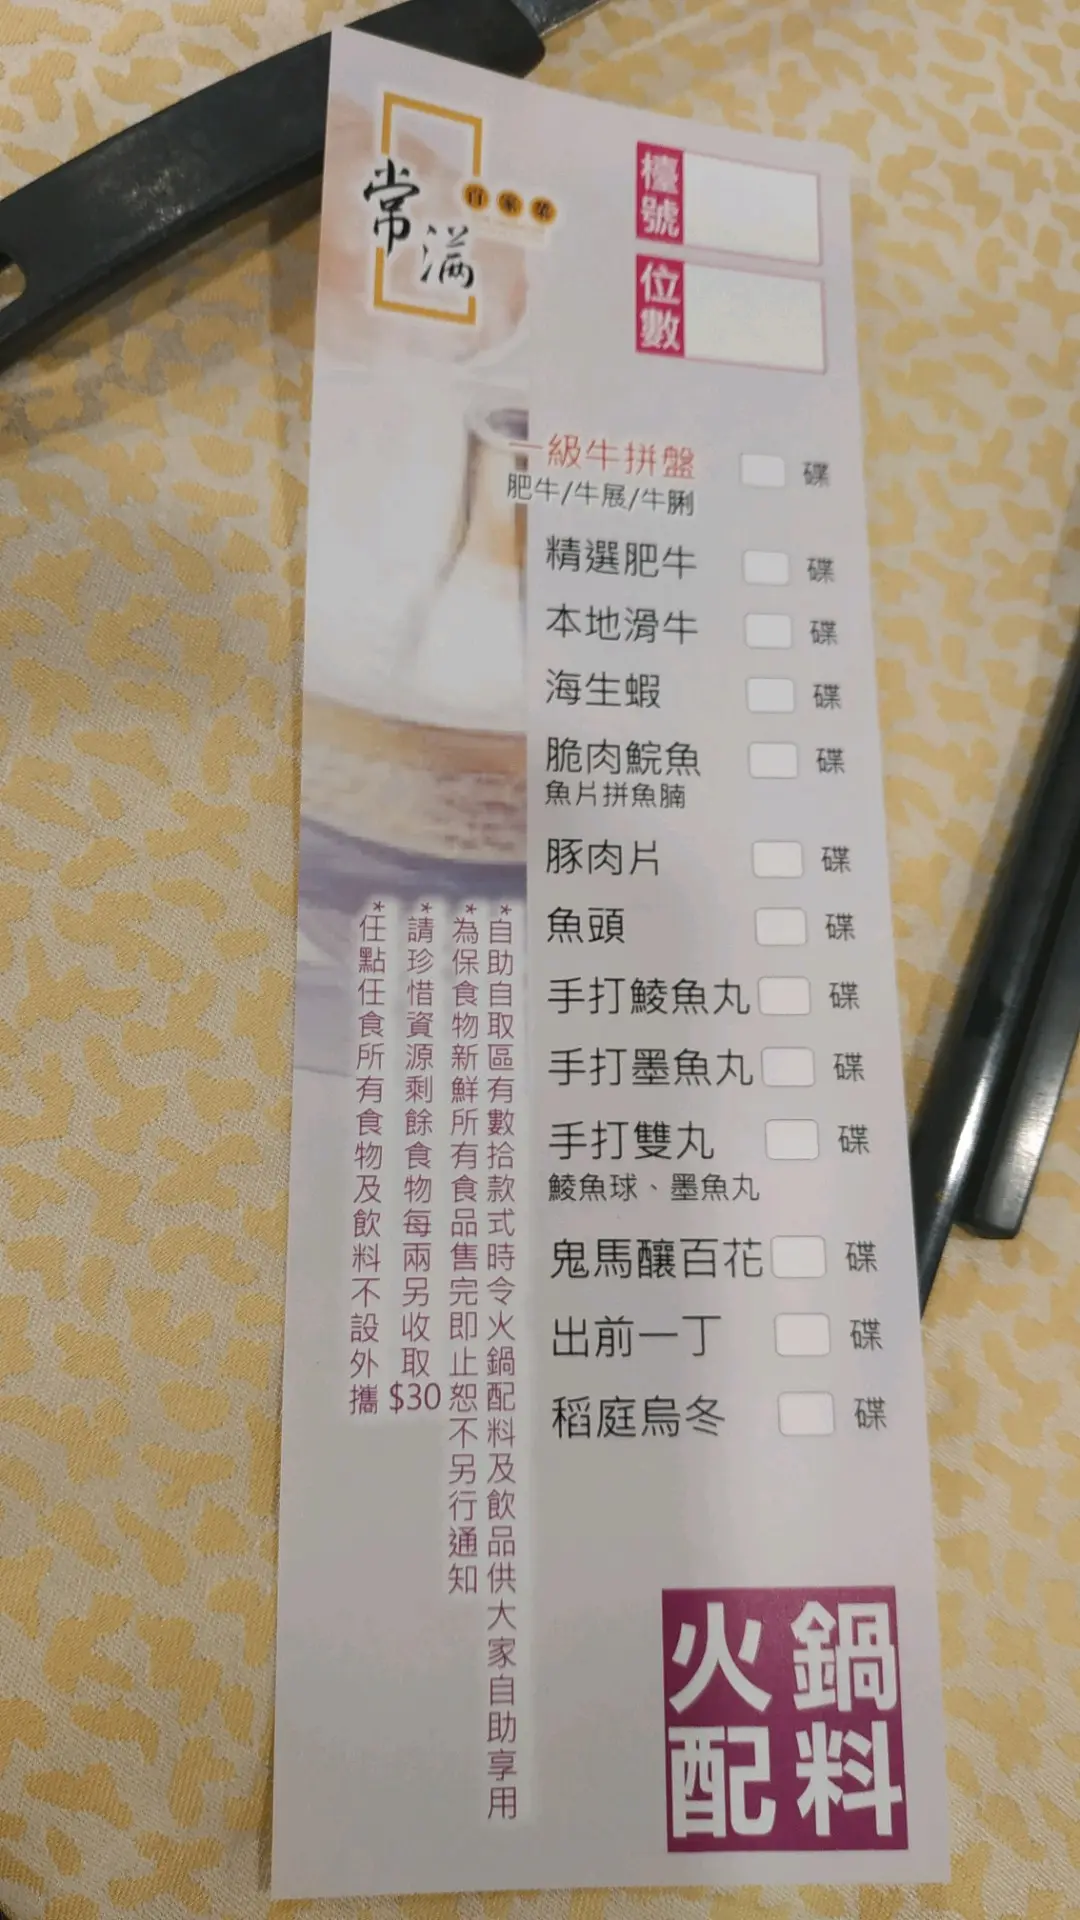 常满
百家菜
檯號
位數
一級牛拼盤 碟
肥牛/牛展/牛脷
精選肥牛 碟
本地滑牛 碟
海生蝦 碟
脆肉鯇魚 碟
魚片拼魚腩
豚肉片 碟
魚頭 碟
手打鯪魚丸 碟
手打墨魚丸 碟
手打雙丸 碟
鯪魚球、墨魚丸
鬼馬釀百花 碟
出前一丁 碟
稻庭烏冬 碟
*自助自取區有數拾款式時令火鍋配料及飲品供大家自助享用
*為保食物新鮮所有食品售完即止恕不另行通知
*請珍惜資源剩餘食物每兩另收取$30
*任點任食所有食物及飲料不設外攜
火鍋
配料